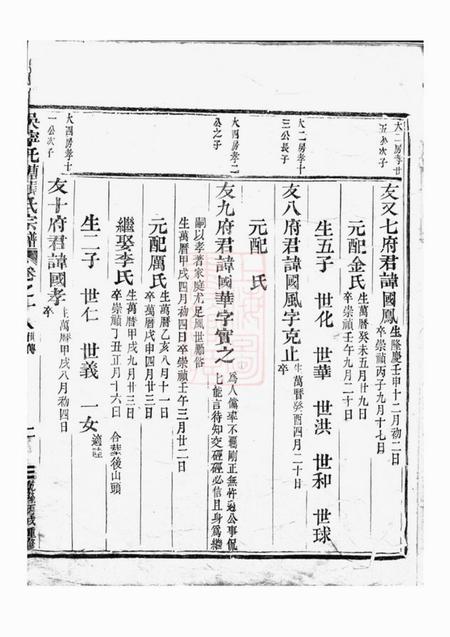 友又七府君諱國鳳
生隆慶壬申十二月初二日
卒崇禎丙子九月十七日
元配金氏
生萬曆癸未五月廿九日
卒崇禎壬午九月二十日
生五子 世化 世華 世洪 世和 世球
大二房孝十
三公長子
友八府君諱國風字克止
生萬曆癸酉四月二十日
卒
元配 氏
大四房孝二
公之子
友九府君諱國華字實之
爲人
不
剛正無
過公事侃
能言待知交硜硜必信且身爲繼
嗣以孝著家庭尤足風世勵俗
生萬曆甲戌四月初四日卒崇禎壬午三月廿二日
元配厲氏
生萬曆乙亥八月十一日
卒萬曆戊申四月廿三日
繼娶李氏
生萬曆甲戌九月廿三日
卒崇禎丁丑正月十六日
合葬後山頭
生二子 世仁 世義 一女
適
大四房孝十
一公次子
友十府君諱國孝
生萬曆甲戌八月初四日
卒
氏宗譜
卷之